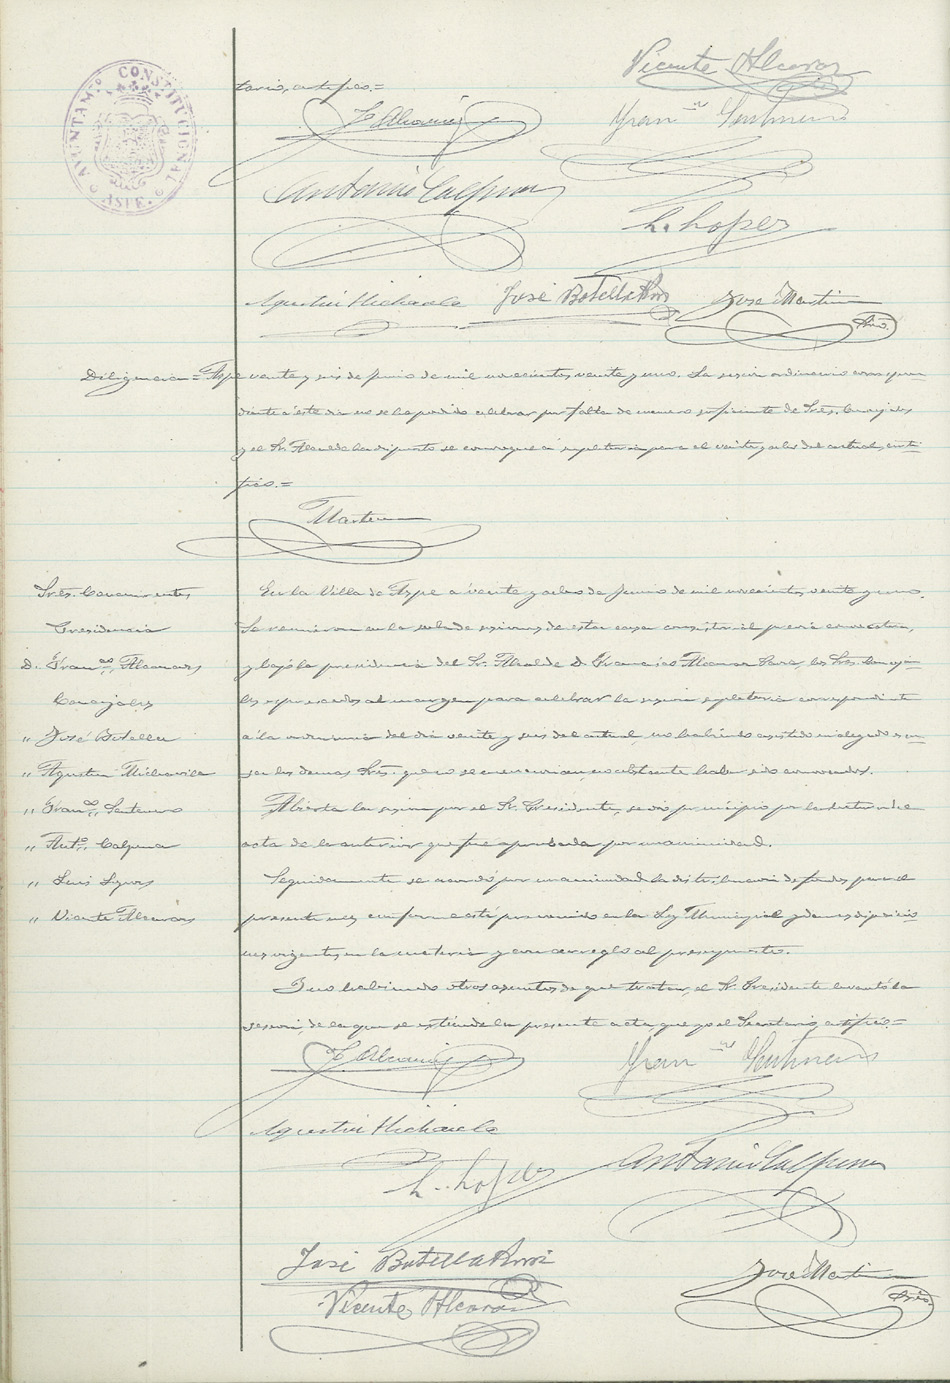 AYUNTAM.to CONSTITUCIONAL
ASPE.
tario, certifico.=
Vicente Alcaraz
F. Alcaraz
Fran.co
Antonio Calpena
L. Lopez
Agustín Michavila José Botella José Martin
Srio.
Diligencia = Aspe veinte y seis de Junio de mil novecientos veinte y uno. La sesión ordinaria correspon-
diente á este día no se ha podido celebrar por falta de número suficiente de Sres. Concejales
y el Sr. Alcalde ha dispuesto se convoque á supletoria para el veinte y ocho del actual, certi-
fico.=
Martin
Sres. Concurrentes
Presidencia
D. Fran.co Alcaraz
Concejales
" José Botella
" Agustin Michavila
" Fran.co
" Ant.o Calpena
" Luis
" Vicente Alcaraz
En la Villa de Aspe á veinte y ocho de Junio de mil novecientos veinte y uno.
Se reunieron en la sala de sesiones de esta casa consistorial previa convocatoria,
y bajo la presidencia del Sr. Alcalde D. Francisco Alcaraz los Sres. Conceja-
les expresados al margen para celebrar la sesión supletoria correspondiente
á la ordinaria del día veinte y seis del actual, no habiendo asistido ni alegado
los demas Sres. que no se mencionan, no obstante haber sido convocados.
Abierta la sesión por el Sr. Presidente, se dió principio por la lectura del
acta de la anterior que fue aprobada por unanimidad.
Seguidamente se acordó por unanimidad la distribución de fondos para el
presente mes, conforme está prevenido en la Ley Municipal y demas disposicio-
nes vigentes en la materia y con arreglo al presupuesto.
Y no habiendo otros asuntos de que tratar, el Sr. Presidente levantó la
sesión, de la que se extiende la presente acta que yo el Secretario, certifico.=
F. Alcaraz
Fran.co
Agustín Michavila
L. Lopez
Antonio Calpena
José Botella
Vicente Alcaraz
José Martin
Srio.